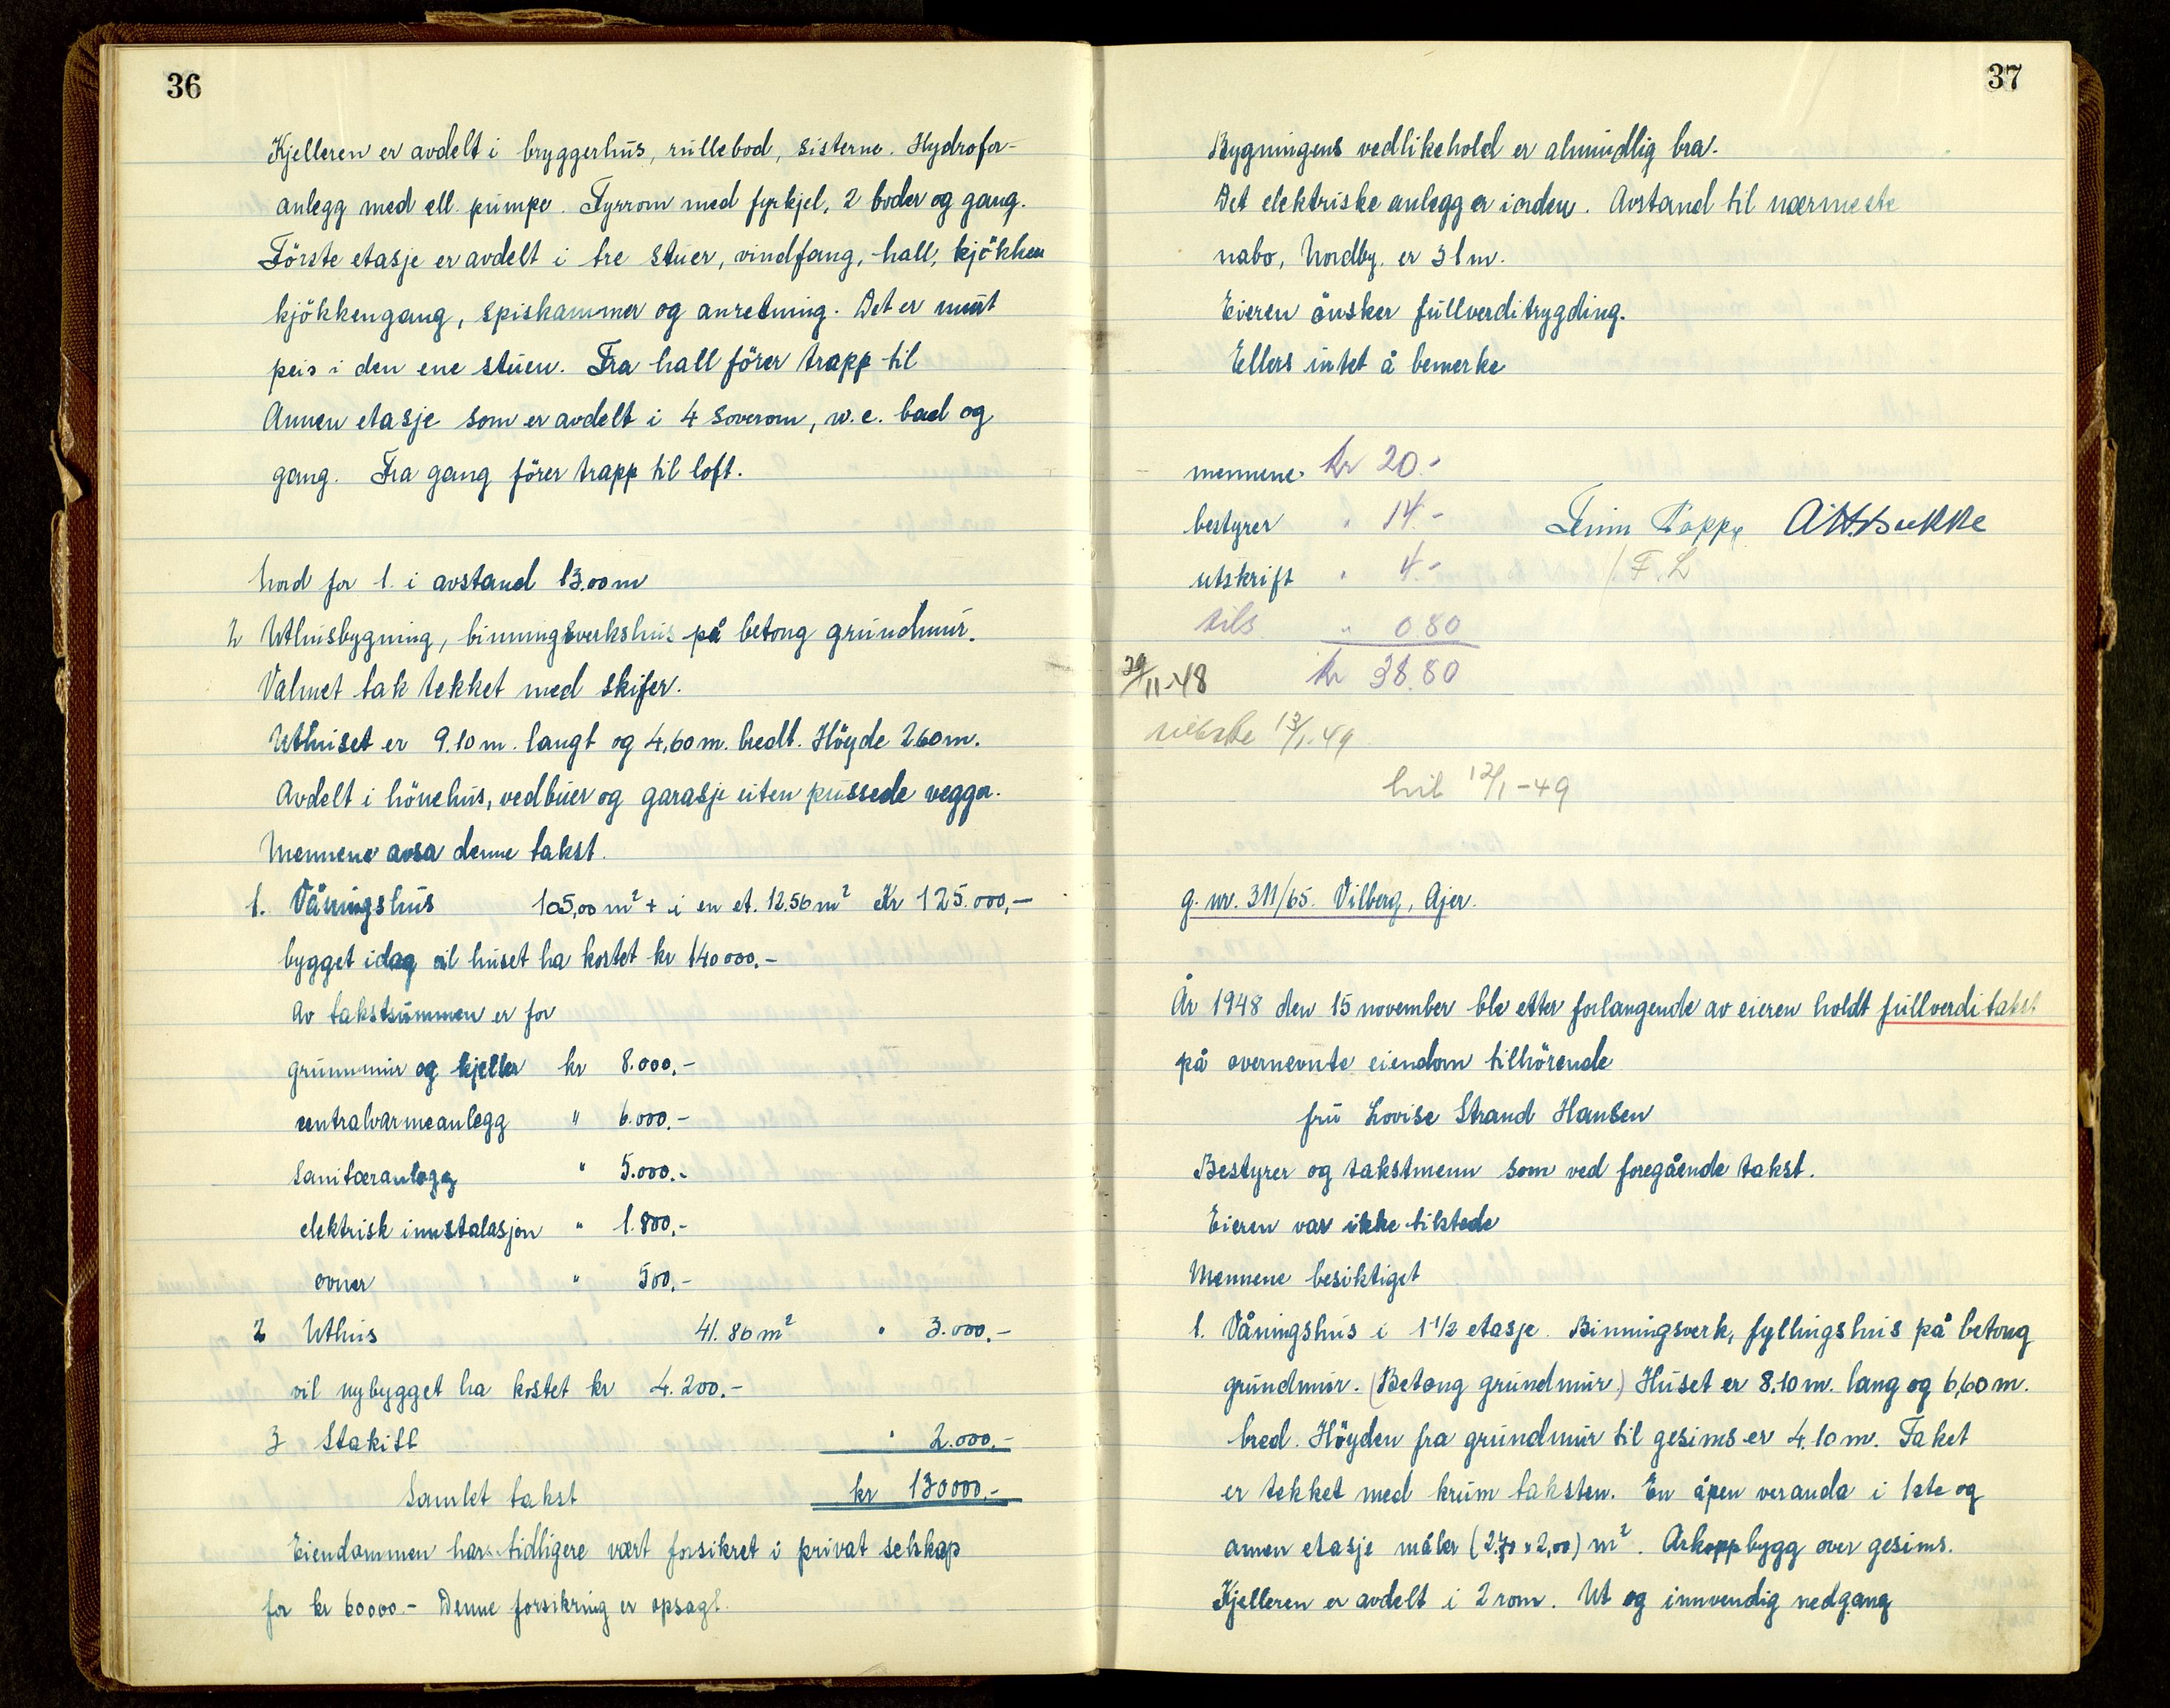 36
Kjelleren er avdelt i bryggerhus, rullebod, sisterne. Hydrofor-
anlegg med ell. pumpe. Fyrrom med fyrkjel, 2 boder og gang.
Förste etasje er avdelt i tre stuer, vindfang, hall, kjökken
kjökkengang, spiskammer og anretning. Det er murt
peis i den ene stuen. Fra hall förer trapp til
Annen etasje som er avdelt i 4 soverom, w.c. bad og
gang. Fra gang förer trapp til loft.
Nord for 1. i avstand 13.00 m
2 Uthusbygning, binningsverkshus på betong grundmur.
Valmet tak tekket med skifer.
Uthuset er 9.10 m. langt og 4,60 m. bredt. Höyde 2.60 m.
Avdelt i hönehus, vedbuer og garasje uten pussede vegger.
Mennene avsa denne takst.
1. Våningshus 105,00 m² + i en et. 12.56 m² Kr 125.000,-
bygget idag vil huset ha kostet kr 140000.-
Av takstsummen er for
grunnmur og kjeller kr 8.000.-
centralvarmeanlegg " 6.000.-
Sanitæranlegg " 5.000.-
elektrisk innstalasjon " 1.800.-
ovner " 500.-
2 Uthus 41.86 m² " 3.000.-
vil nybygget ha kostet kr 4.200.-
3 Stakitt " 2.000.-
Samlet takst kr 130000.-
Eiendommen har tidligere vært forsikret i privat selskap
for kr 60000.- Denne forsikring er opsagt.
37
Bygningens vedlikehold er almindlig bra.
Det elektriske anlegg er i orden. Avstand til nærmeste
nabo, Nordby, er 31 m.
Eieren önsker fullverditrygding.
Ellers intet å bemerke
mennene kr 20.-
bestyrer " 14.-
utskrift " 4.-
Finn Poppe
/F.L
tils " 0.80
29/11-48 kr 38.80
13/1.49
12/1-49
g. nr. 311/65. Vilberg, Ajer.
År 1948 den 15 november ble etter forlangende av eieren holdt fullverditakst
på overnevnte eiendom tilhörende
fru Lovise Strand Hansen
Bestyrer og takstmenn som ved foregående takst.
Eieren var ikke tilstede
Mennene besiktiget
1. Våningshus i 1 1/2 etasje. Binningsverk, fyllingshus på betong
grundmur. (Betong grundmur) Huset er 8,10 m. lang og 6,60 m.
bred. Höyden fra grundmur til gesims er 4.10 m. Taket
er tekket med krum taksten. En åpen veranda i 1ste og
annen etasje måler (2.70 x 2,00) m². Arkoppbygg over gesims.
Kjelleren er avdelt i 2 rom. Ut og innvendig nedgang